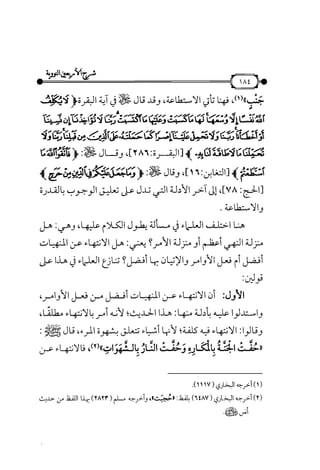 شرح الأربعين النووية
١٨٤
جَنْبٍ»(١)، فهنا تأتي الاستطاعة، وقد قال ﷻ في آية البقرة ﴿لَا يُكَلِّفُ
ٱللَّهُ نَفْسًا إِلَّا وُسْعَهَا لَهَا مَا كَسَبَتْ وَعَلَيْهَا مَا ٱكْتَسَبَتْ رَبَّنَا لَا تُؤَاخِذْنَا إِن نَّسِينَا
أَوْ أَخْطَأْنَا رَبَّنَا وَلَا تَحْمِلْ عَلَيْنَا إِصْرًا كَمَا حَمَلْتَهُ عَلَى ٱلَّذِينَ مِن قَبْلِنَا رَبَّنَا وَلَا
تُحَمِّلْنَا مَا لَا طَاقَةَ لَنَا بِهِ﴾ [البقــرة: ٢٨٦]، وقــال ﷻ: ﴿فَٱتَّقُوا ٱللَّهَ مَا
ٱسْتَطَعْتُمْ﴾ [التغابن: ١٦]، وقال ﷻ: ﴿وَمَا جَعَلَ عَلَيْكُمْ فِي ٱلدِّينِ مِنْ حَرَجٍ﴾
[الحج: ٧٨]، إلى آخر الأدلة التي تدل على تعليق الوجوب بالقدرة
والاستطاعة .
هنا اختلف العلماء في مسألة يطول الكلام عليها، وهي: هل
منزلة النهي أعظم أو منزلة الأمر؟ يعني: هل الانتهاء عن المنهيات
أفضل أم فعل الأوامر والإتيان بها أفضل؟ تنازع العلماء في هذا على
قولين:
الأول: أن الانتهاء عن المنهيات أفضل من فعل الأوامر،
واستدلوا عليه بأدلة منها: هذا الحديث؛ لأنه أمر بالانتهاء مطلقًا،
وقالوا: الانتهاء فيه كلفة؛ لأنها أشياء تتعلق بشهوة المرء، قال ﷺ:
«حُفَّتْ الْجَنَّةُ بِالْمَكَارِهِ وَحُفَّتْ النَّارُ بِالشَّهَوَاتِ»(٢)، فالانتهاء عن
(١) أخرجه البخاري (١١١٧).
(٢) أخرجه البخاري (٦٤٨٧) بلفظ: «حُجِبَتْ»، وأخرجه مسلم (٢٨٢٣) بهذا اللفظ من حديث
أنس ﵁.